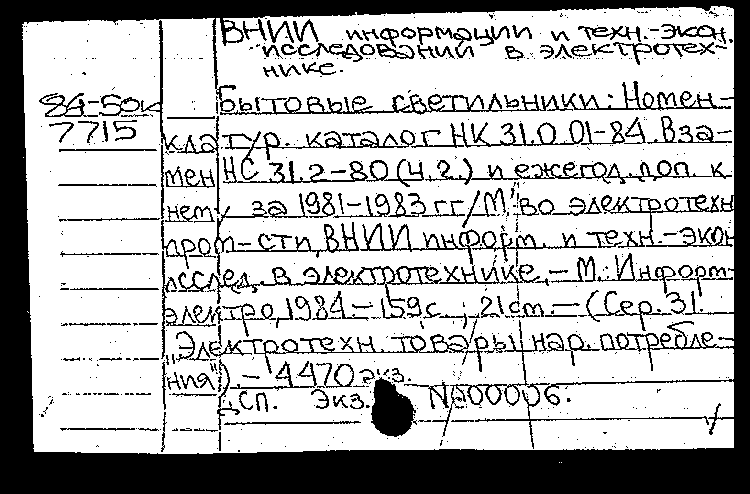 ВНИИ информации и техн.-экон.
исследований в электротех-
нике.
84-50к
Бытовые светильники: Номен-
7715
клатур. каталог НК 31.0.01-84. Вза-
мен НС 31.2-80 (ч.2.) и ежегод. доп. к
нему за 1981-1983 гг/М-во электротехн
пром-сти, ВНИИ информ. и техн.-экон
исслед. в электротехнике,- М.: Информ-
электро, 1984.- 159 с.; 21 см.- (Сер. 31
"Электротехн. товары нар. потребле-
ния").- 4470 экз.
ДСП. Экз. №00006.